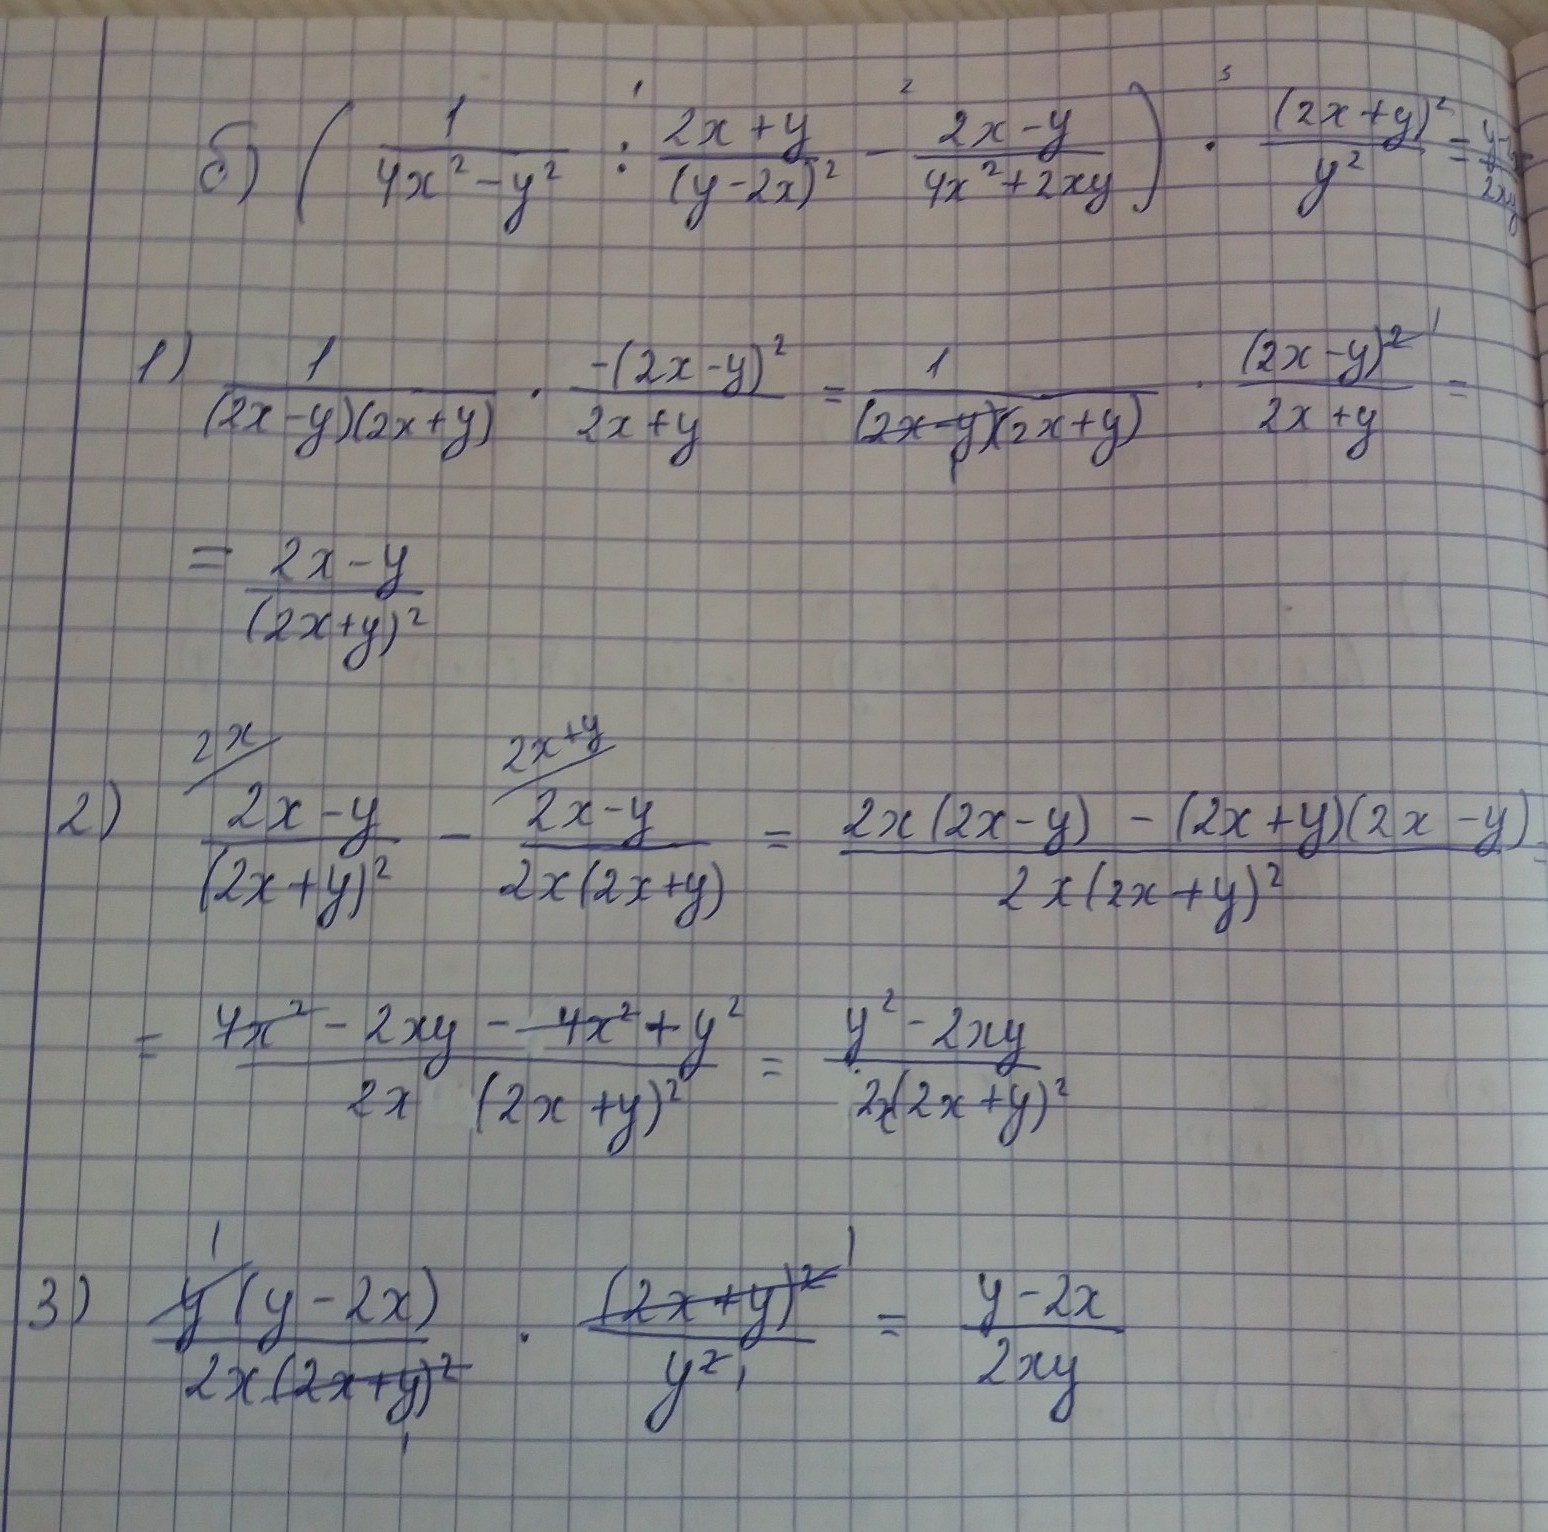 б) ( 1/(4x² - y²) : (2x + y)/(y - 2x)² - (2x - y)/(4x² + 2xy) ) · (2x + y)²/y² = (y - 2x)/(2xy)
1) 1/((2x - y)(2x + y)) · -(2x - y)²/(2x + y) = 1/((2x - y)(2x + y)) · (2x - y)²/(2x + y) =
= (2x - y)/(2x + y)²
2) (2x - y)/(2x + y)² - (2x - y)/(2x(2x + y)) = (2x(2x - y) - (2x + y)(2x - y))/(2x(2x + y)²) =
= (4x² - 2xy - 4x² + y²)/(2x (2x + y)²) = (y² - 2xy)/(2x(2x + y)²)
3) y(y - 2x)/(2x(2x + y)²) · (2x + y)²/y² = (y - 2x)/(2xy)